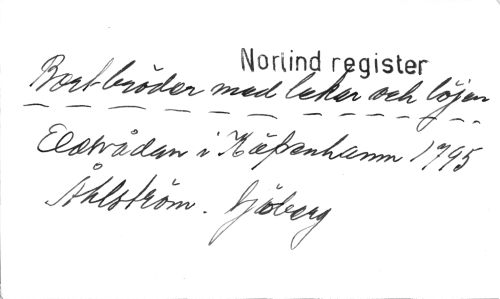 Norlind register
Bort bröder med leker och löjen
Eldsvådan i Köpenhamn 1795
Åhlström. Sjöberg